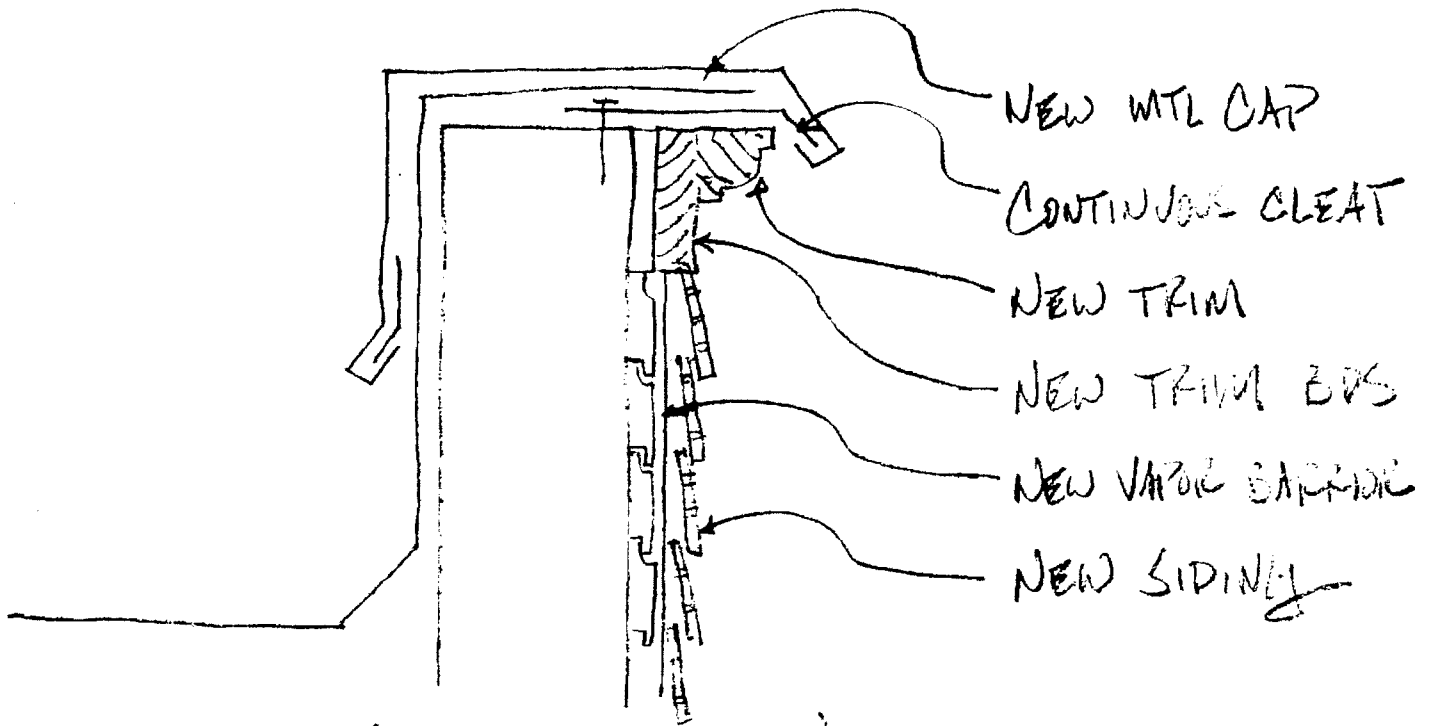 NEW MTL CAP
CONTINUOUS CLEAT
NEW TRIM
NEW TRIM BDS
NEW VAPOR BARRIOR
NEW SIDING